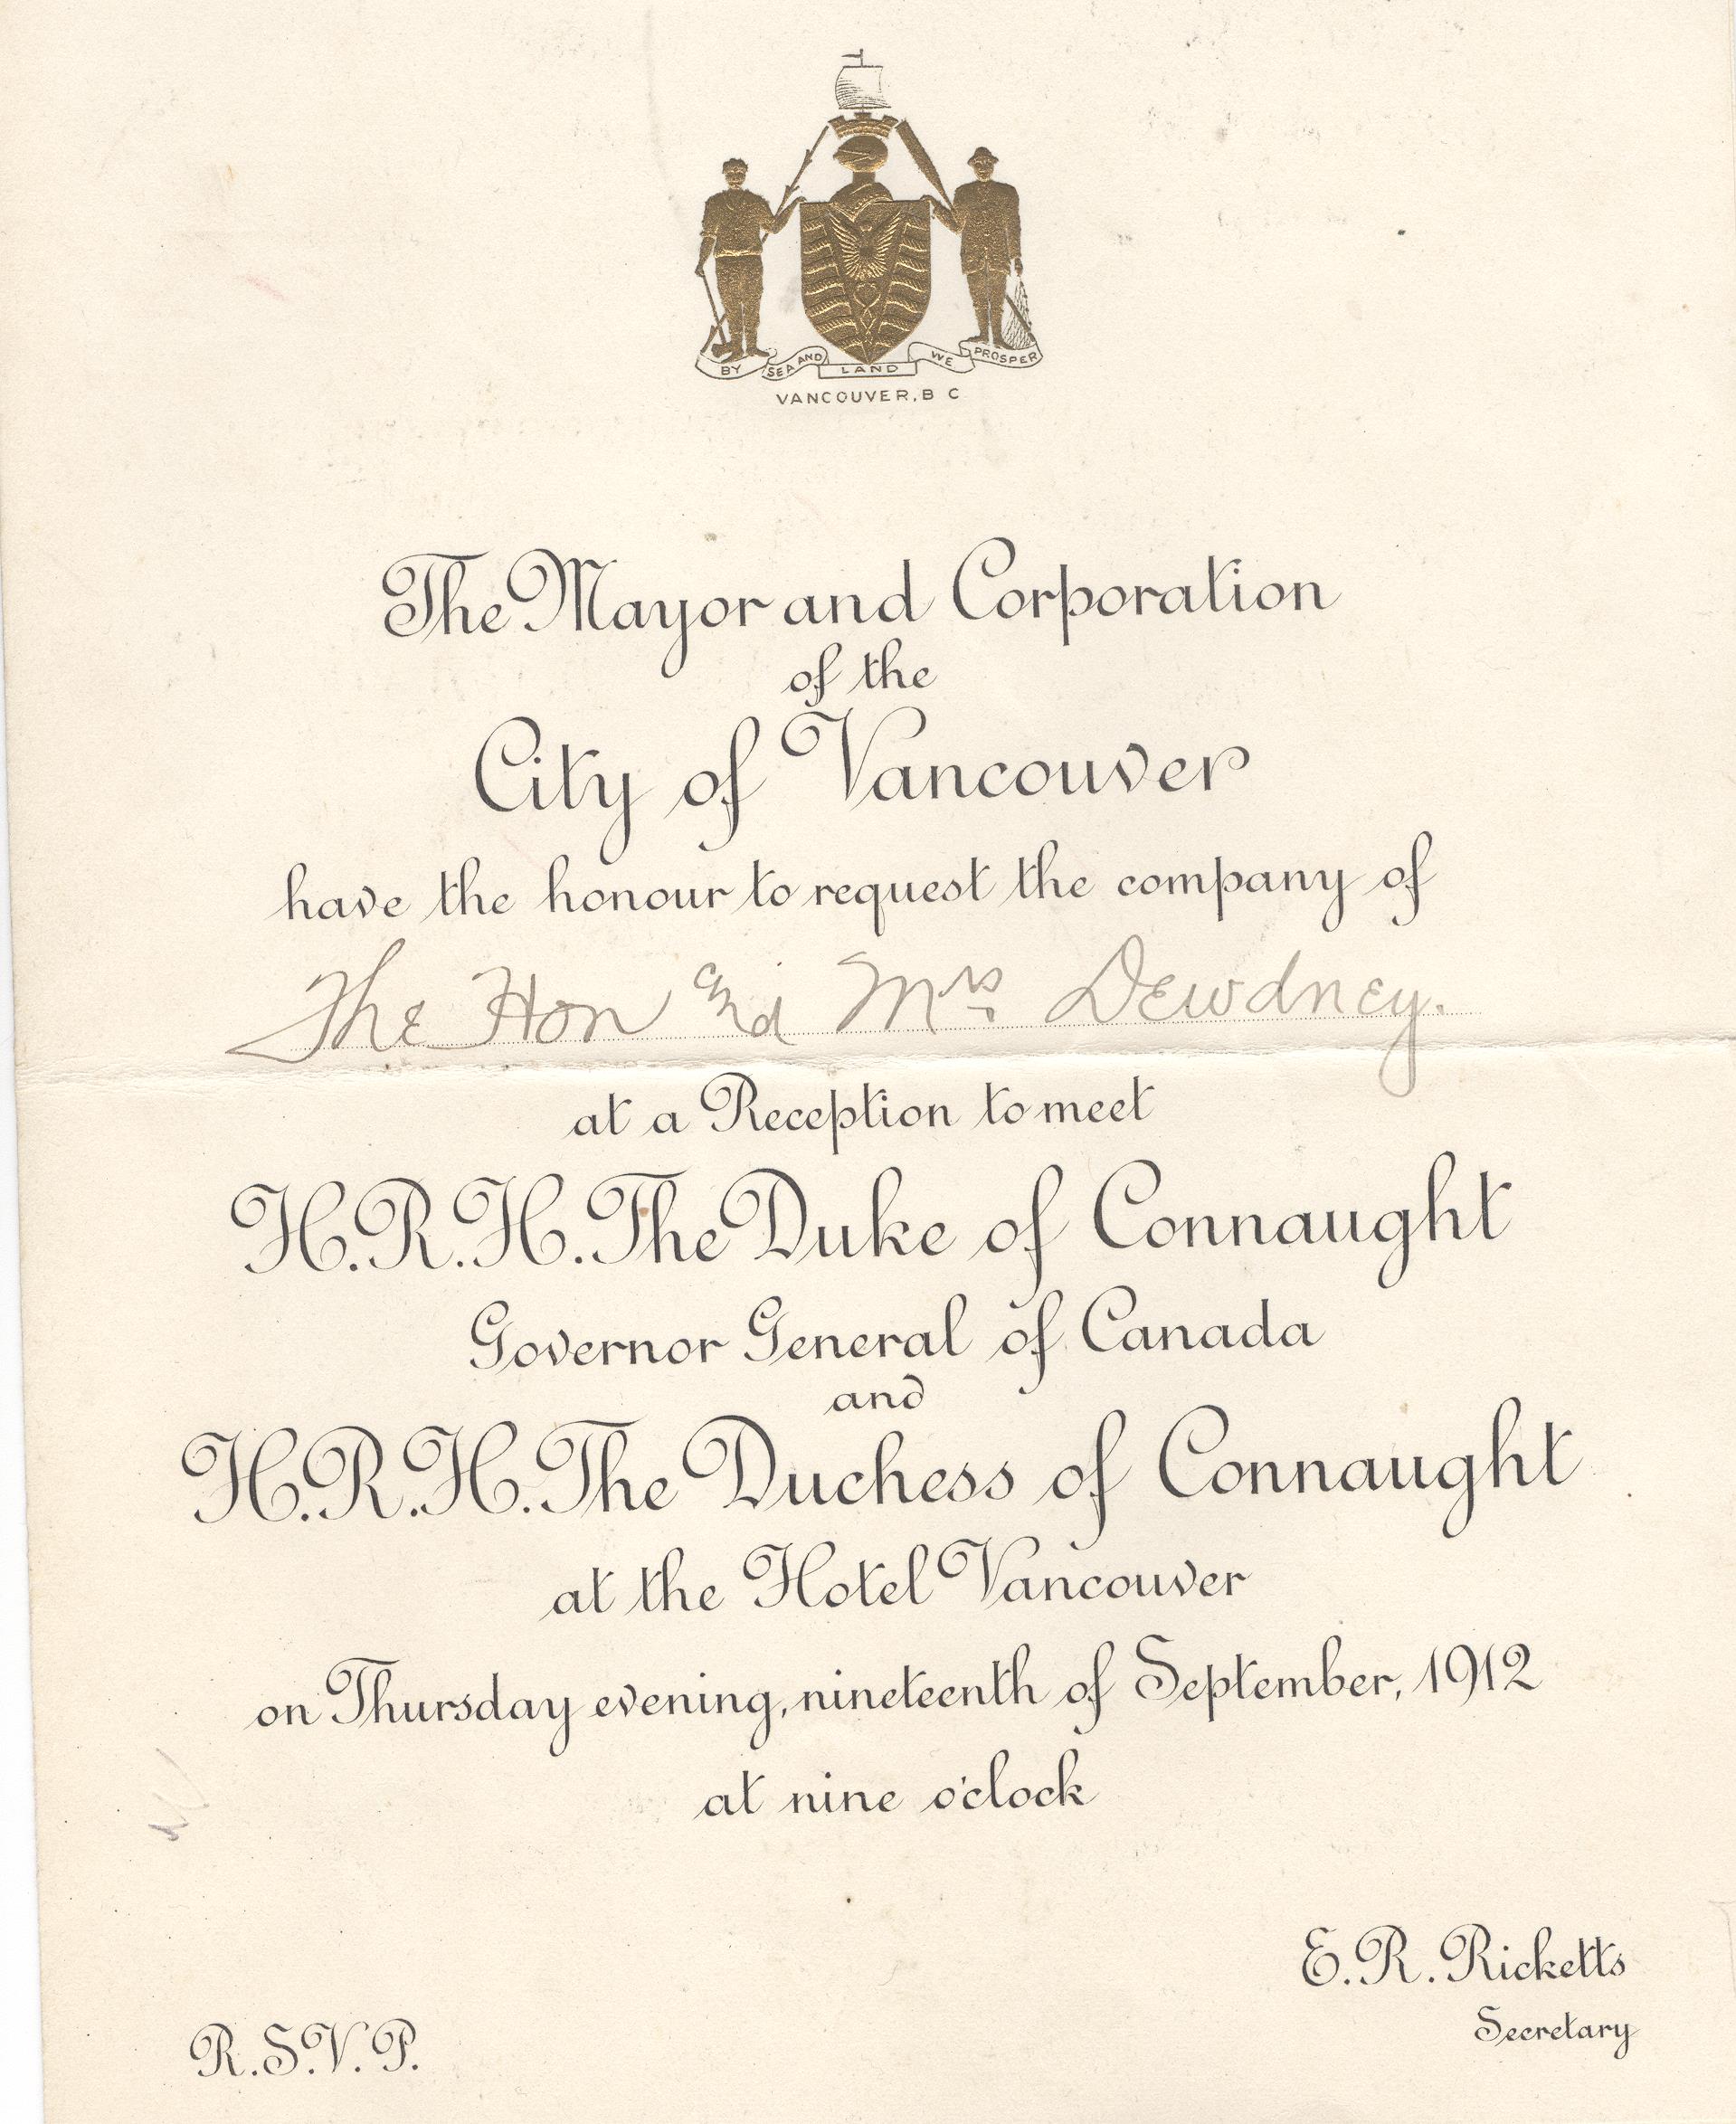 BY SEA AND LAND WE PROSPER
VANCOUVER, B C
The Mayor and Corporation
of the
City of Vancouver
have the honour to request the company of
The Hon and Mrs Dewdney.
at a Reception to meet
H.R.H. The Duke of Connaught
Governor General of Canada
and
H.R.H. The Duchess of Connaught
at the Hotel Vancouver
on Thursday evening, nineteenth of September, 1912
at nine o'clock
E. R. Ricketts
Secretary
R.S.V.P.